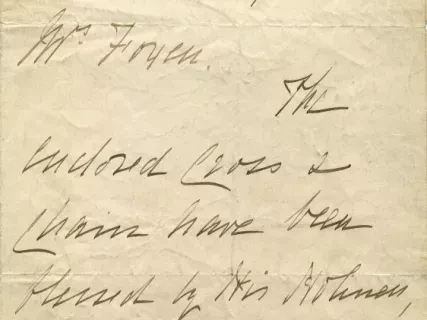 Mrs Foxen.
The
enclosed Cross &
chain have been
blessed by His Holiness,